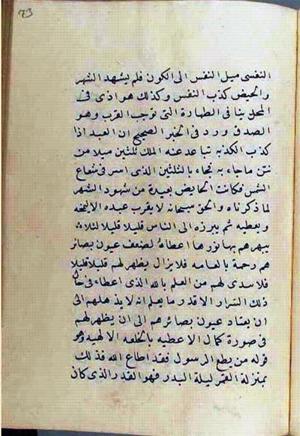 73
النفسى ميل النفس الى الكون فلم يشهد الشهر
والحيض كذب النفس وكذلك هو اذى فى
المحل ينافى الطهارة التى توجب القرب وهو
الصدق ورد فى الخبر الصحيح ان العبد اذا
كذب الكذبه تباعد عنه الملك ثلثين ميلا من
نتن ما جاء به فجاء بالثلثين الذى اسر فى شعاع
الشمس فكانت الحايض بعيدة من شهود الشهر
لما ذكرناه والحق سبحانه لا يقرب عبده الا ليمنحه
ويعطيه ثم يبرزه الى الناس قليلا قليلا لئلا
يبهرهم بها نورها اعطاه لضعف عيون بصائر
هم رحمة بالعامه فلا يزال يظهر لهم قليلا قليلا
فلا يبدى لهم من العلم بالله الذى اعطاه فى
ذلك السرار الا قدر ما يعلم انه لا يذهلهم الى
ان يعتاد عيون بصائرهم الى ان يظهر لهم
فى صورة كمال الاعطيه بالخلعه الالهيه وهو
قوله من يطع الرسول فقد اطاع الله فذلك
بمنزلة القمر ليلة البدر فهو القدر الذى كان